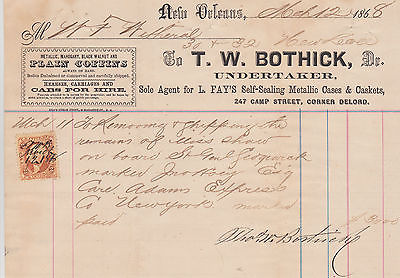 New Orleans, Mch 12 1868
M W F Witheral
30 & 32
To T. W. BOTHICK, Dr.
UNDERTAKER,
Sole Agent for L. FAY'S Self-Sealing Metallic Cases & Caskets,
247 CAMP STREET, CORNER DELORD.
METALLIC, MAHOGANY, BLACK WALNUT AND
PLAIN COFFINS
ALWAYS ON HAND.
Bodies Embalmed or commercial and carefully shipped.
HEARSES, CARRIAGES AND
CABS FOR HIRE.
Mch 11 To Removing & shipping the
remains of Moses Shaw
on board St
marked Jno Key Esq
Care Adams Express
Co New York marked
paid
Thos W Bothick